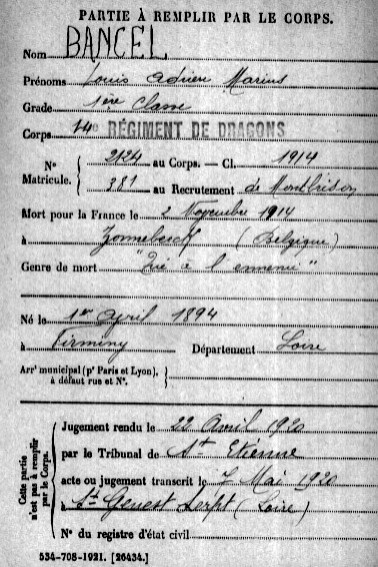 PARTIE À REMPLIR PAR LE CORPS.
Nom BANCEL
Prénoms Louis Adrien Marius
Grade 1ère Classe
Corps 14e RÉGIMENT DE DRAGONS
N° Matricule. { 2124 au Corps. — Cl. 1914
881 au Recrutement de Montbrison
Mort pour la France le 2 Novembre 1914
à Zonnebeck (Belgique)
Genre de mort "Tué à l'ennemi"
Né le 1er April 1894
à Firminy Département Loire
Arrt municipal (pr Paris et Lyon), à défaut rue et N°. }
Cette partie n'est pas à remplir par le Corps.
Jugement rendu le 22 Avril 1920
par le Tribunal de St Etienne
acte ou jugement transcrit le 7 Mai 1920
à St Genest Lerpt (Loire)
N° du registre d'état civil
534-708-1921. [26434.]